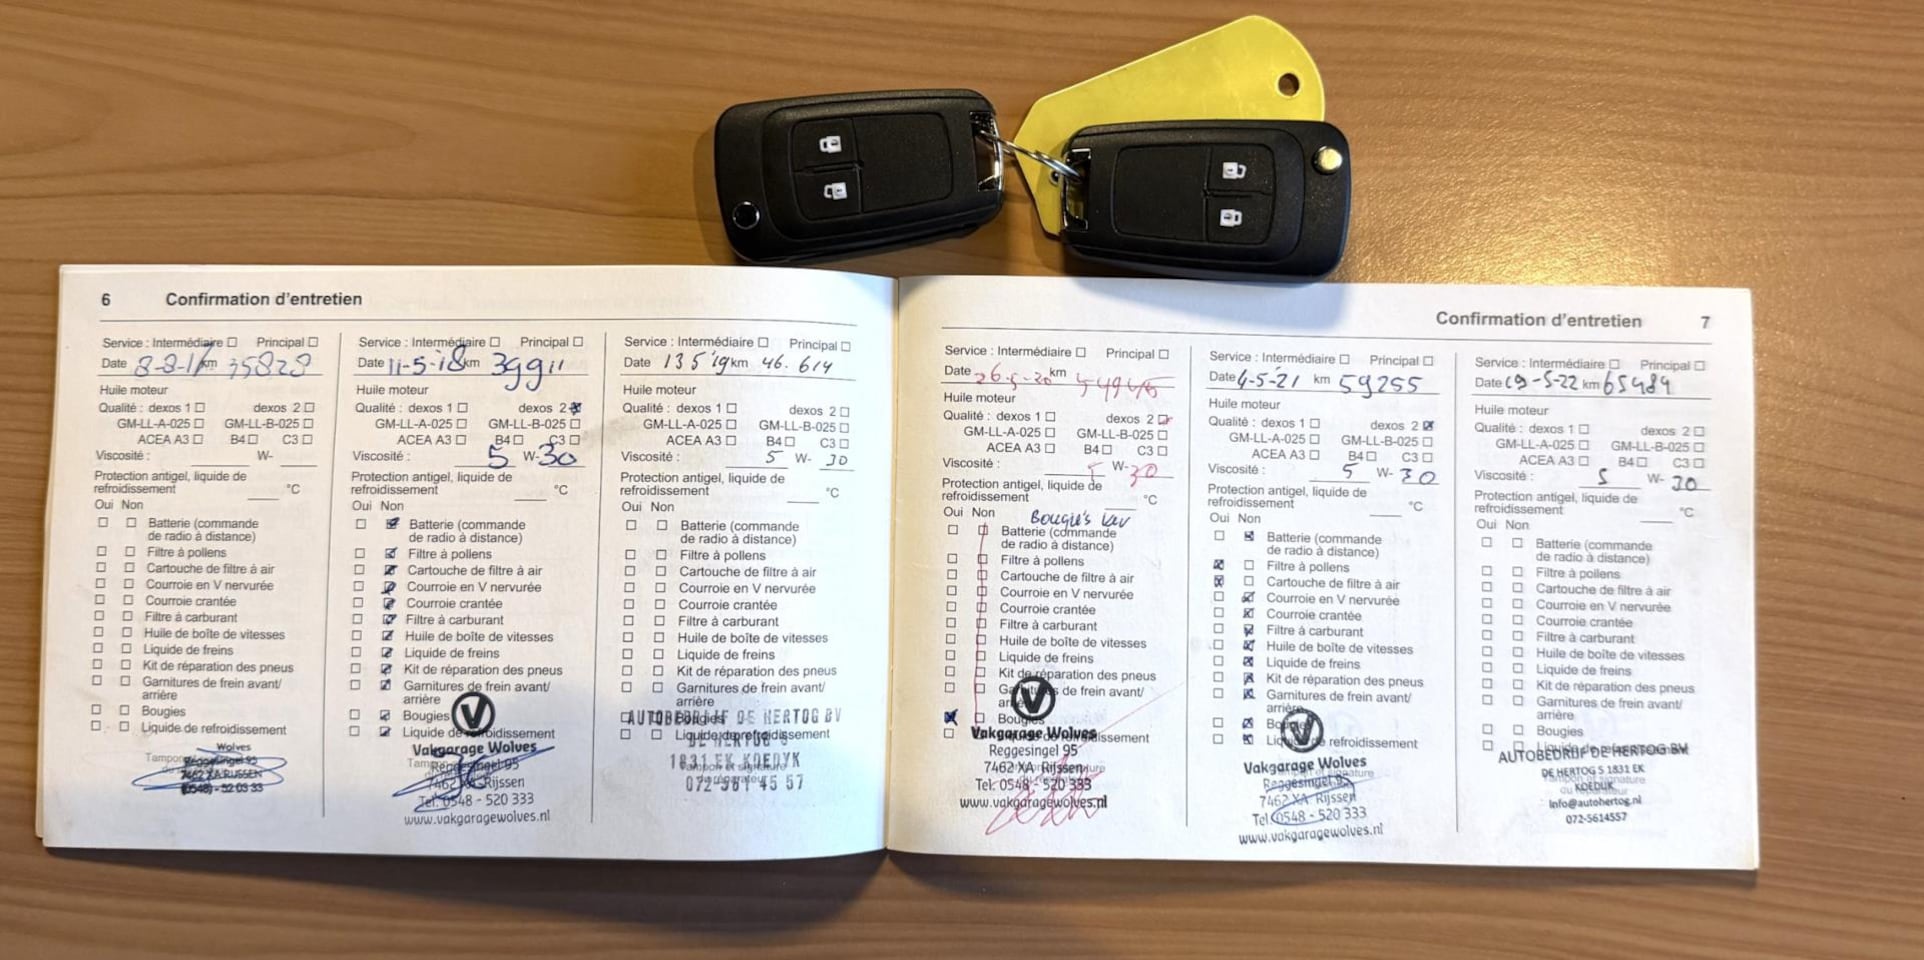 6 Confirmation d'entretien
Service : Intermédiaire ☐ Principal ☐
Date 8-8-17 km 35828
Huile moteur
Qualité : dexos 1 ☐ dexos 2 ☐
GM-LL-A-025 ☐ GM-LL-B-025 ☐
ACEA A3 ☐ B4 ☐ C3 ☐
Viscosité : W-
Protection antigel, liquide de
refroidissement °C
Oui Non
☐ ☐ Batterie (commande
de radio à distance)
☐ ☐ Filtre à pollens
☐ ☐ Cartouche de filtre à air
☐ ☐ Courroie en V nervurée
☐ ☐ Courroie crantée
☐ ☐ Filtre à carburant
☐ ☐ Huile de boîte de vitesses
☐ ☐ Liquide de freins
☐ ☐ Kit de réparation des pneus
☐ ☐ Garnitures de frein avant/
arrière
☐ ☐ Bougies
☐ ☐ Liquide de refroidissement
Wolves
Reggesingel 95
7462 XA RIJSSEN
(0548) - 52 03 33
Service : Intermédiaire ☐ Principal ☐
Date 11-5-18 km 39911
Huile moteur
Qualité : dexos 1 ☐ dexos 2 ☒
GM-LL-A-025 ☐ GM-LL-B-025 ☐
ACEA A3 ☐ B4 ☐ C3 ☐
Viscosité : 5 W-30
Protection antigel, liquide de
refroidissement °C
Oui Non
☐ ☒ Batterie (commande
de radio à distance)
☐ ☒ Filtre à pollens
☐ ☒ Cartouche de filtre à air
☐ ☒ Courroie en V nervurée
☐ ☒ Courroie crantée
☐ ☒ Filtre à carburant
☐ ☒ Huile de boîte de vitesses
☐ ☒ Liquide de freins
☐ ☒ Kit de réparation des pneus
☐ ☒ Garnitures de frein avant/
arrière
☐ ☒ Bougies
☐ ☒ Liquide de refroidissement
V
Vakgarage Wolves
Reggesingel 95
7462 XA Rijssen
Tel. 0548 - 520 333
www.vakgaragewolves.nl
Service : Intermédiaire ☐ Principal ☐
Date 13 5 '19 km 46.614
Huile moteur
Qualité : dexos 1 ☐ dexos 2 ☐
GM-LL-A-025 ☐ GM-LL-B-025 ☐
ACEA A3 ☐ B4 ☐ C3 ☐
Viscosité : 5 W- 30
Protection antigel, liquide de
refroidissement °C
Oui Non
☐ ☐ Batterie (commande
de radio à distance)
☐ ☐ Filtre à pollens
☐ ☐ Cartouche de filtre à air
☐ ☐ Courroie en V nervurée
☐ ☐ Courroie crantée
☐ ☐ Filtre à carburant
☐ ☐ Huile de boîte de vitesses
☐ ☐ Liquide de freins
☐ ☐ Kit de réparation des pneus
☐ ☐ Garnitures de frein avant/
arrière
☐ ☐ Bougies
AUTOBEDRIJF DE HERTOG BV
☐ ☐ Liquide de refroidissement
DE HERTOG 5
1831 EK KOEDYK
072-561 45 57
Confirmation d'entretien 7
Service : Intermédiaire ☐ Principal ☐
Date 26-5-20 km 54946
Huile moteur
Qualité : dexos 1 ☐ dexos 2 ☒
GM-LL-A-025 ☐ GM-LL-B-025 ☐
ACEA A3 ☐ B4 ☐ C3 ☐
Viscosité : 5 W-30
Protection antigel, liquide de
refroidissement °C
Oui Non Bougie's
☐ ☐ Batterie (commande
de radio à distance)
☐ ☐ Filtre à pollens
☐ ☐ Cartouche de filtre à air
☐ ☐ Courroie en V nervurée
☐ ☐ Courroie crantée
☐ ☐ Filtre à carburant
☐ ☐ Huile de boîte de vitesses
☐ ☐ Liquide de freins
☐ ☐ Kit de réparation des pneus
☐ ☐ Garnitures de frein avant/
arrière
☒ ☐ Bougies
☐ Liquide de refroidissement
V
Vakgarage Wolves
Reggesingel 95
7462 XA Rijssen
Tel. 0548 - 520 333
www.vakgaragewolves.nl
Service : Intermédiaire ☐ Principal ☐
Date 4-5-'21 km 59255
Huile moteur
Qualité : dexos 1 ☐ dexos 2 ☒
GM-LL-A-025 ☐ GM-LL-B-025 ☐
ACEA A3 ☐ B4 ☐ C3 ☐
Viscosité : 5 W- 30
Protection antigel, liquide de
refroidissement °C
Oui Non
☐ ☒ Batterie (commande
de radio à distance)
☒ ☐ Filtre à pollens
☒ ☐ Cartouche de filtre à air
☐ ☒ Courroie en V nervurée
☐ ☒ Courroie crantée
☐ ☒ Filtre à carburant
☐ ☒ Huile de boîte de vitesses
☐ ☒ Liquide de freins
☐ ☒ Kit de réparation des pneus
☐ ☒ Garnitures de frein avant/
arrière
☐ ☒ Bougies
☐ ☒ Liquide de refroidissement
V
Vakgarage Wolves
Reggesingel 95
7462 XA Rijssen
Tel. 0548 - 520 333
www.vakgaragewolves.nl
Service : Intermédiaire ☐ Principal ☐
Date 19-5-22 km 65484
Huile moteur
Qualité : dexos 1 ☐ dexos 2 ☐
GM-LL-A-025 ☐ GM-LL-B-025 ☐
ACEA A3 ☐ B4 ☐ C3 ☐
Viscosité : 5 W- 30
Protection antigel, liquide de
refroidissement °C
Oui Non
☐ ☐ Batterie (commande
de radio à distance)
☐ ☐ Filtre à pollens
☐ ☐ Cartouche de filtre à air
☐ ☐ Courroie en V nervurée
☐ ☐ Courroie crantée
☐ ☐ Filtre à carburant
☐ ☐ Huile de boîte de vitesses
☐ ☐ Liquide de freins
☐ ☐ Kit de réparation des pneus
☐ ☐ Garnitures de frein avant/
arrière
☐ ☐ Bougies
☐ ☐ Liquide de refroidissement
AUTOBEDRIJF DE HERTOG BV
DE HERTOG 5 1831 EK
KOEDIJK
Tampon et signature
Info@autohertog.nl
072-5614557